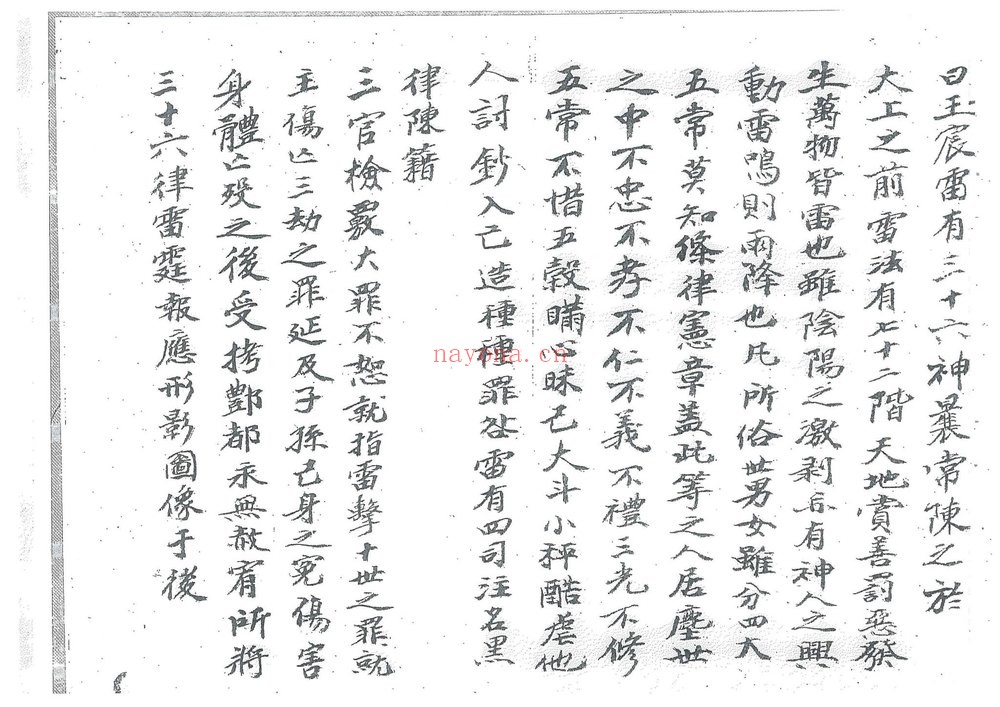 曰玉宸雷有三十六神曩常陳之於
大上之前雷法有七十二階天地賞善罰惡發
生萬物皆雷也雖陰陽之激剥亦有神人之興
動雷鳴則雨降也凡所俗世男女雖分四大
五常莫知條律憲章蓋此等之人居塵世
之中不忠不孝不仁不義不禮三光不修
五常不惜五穀瞞心昧己大斗小秤酷虐他
人討鈔入己造種種罪咎雷有四司注名黑
律陳籍
三官檢覈大罪不恕就指雷擊十世之罪就
主傷亡三劫之罪延及子孫己身之冤傷害
身體亡殁之後受拷酆都永無赦宥所將
三十六律雷霆報應形影圖像于後
nayona.cn